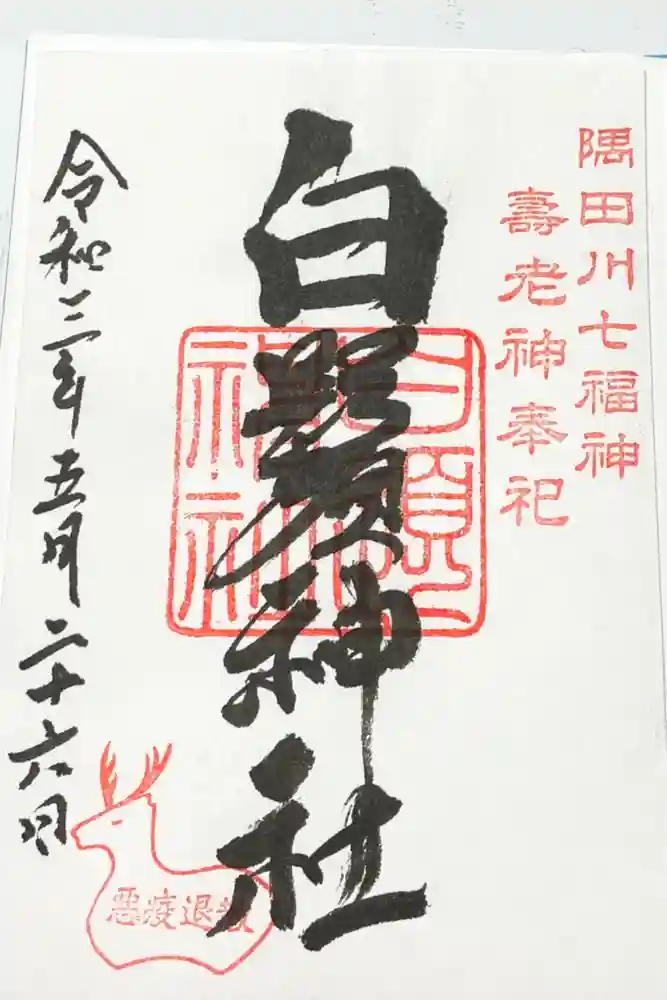 隅田川七福神
壽老神奉祀
白鬚神社
令和三年五月二十六日
惡疫退散